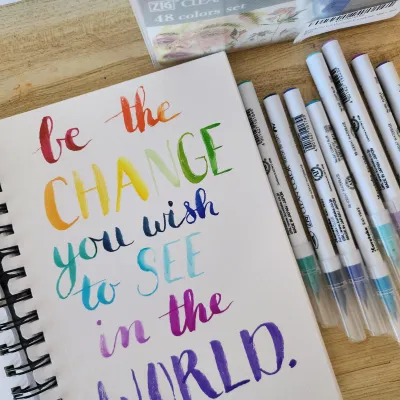 ZIG CLEA
48 colors set
be the
CHANGE
you wish
to SEE
in the
WORLD.